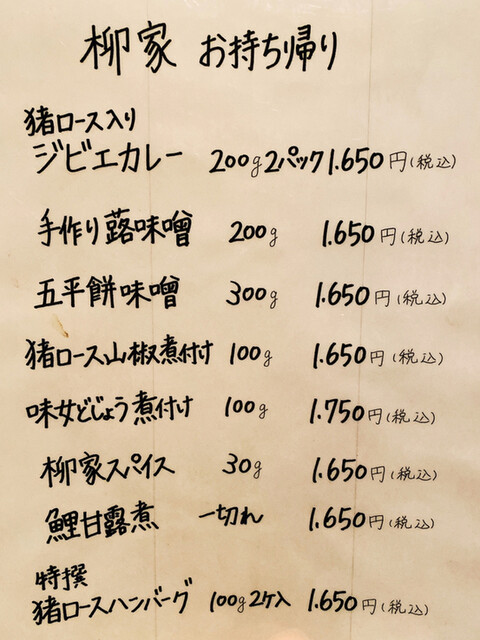 柳家 お持ち帰り
猪ロース入り
ジビエカレー 200g2パック 1.650円(税込)
手作り蕗味噌 200g 1.650円(税込)
五平餅味噌 300g 1.650円(税込)
猪ロース山椒煮付け 100g 1.650円(税込)
味女どじょう煮付け 100g 1.750円(税込)
柳家スパイス 30g 1.650円(税込)
鯉甘露煮 一切れ 1.650円(税込)
特撰
猪ロースハンバーグ 100g2ケ入 1.650円(税込)